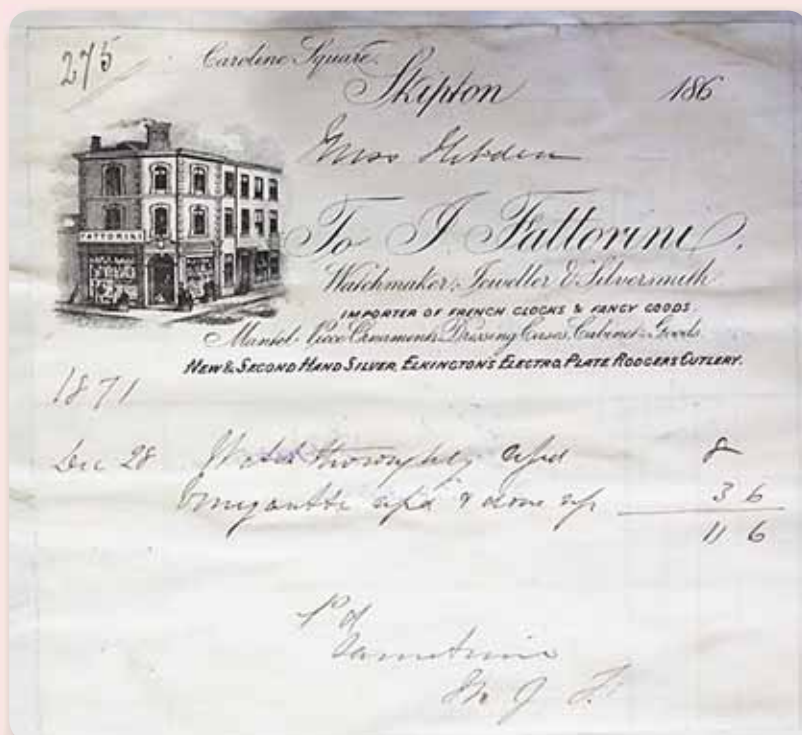 275
Caroline Square.
Skipton 186
Miss Hebden
FATTORINI
To J. Fattorini.
Watchmaker, Jeweller & Silversmith
IMPORTER OF FRENCH CLOCKS & FANCY GOODS
Mantel-Piece Ornaments, Dressing Cases, Cabinet Goods.
NEW & SECOND HAND SILVER, ELKINGTON'S ELECTRO PLATE RODGERS CUTLERY.
1871
Dec 28 Watch thoroughly 8
& done up 3 6
11 6
Pd
J F